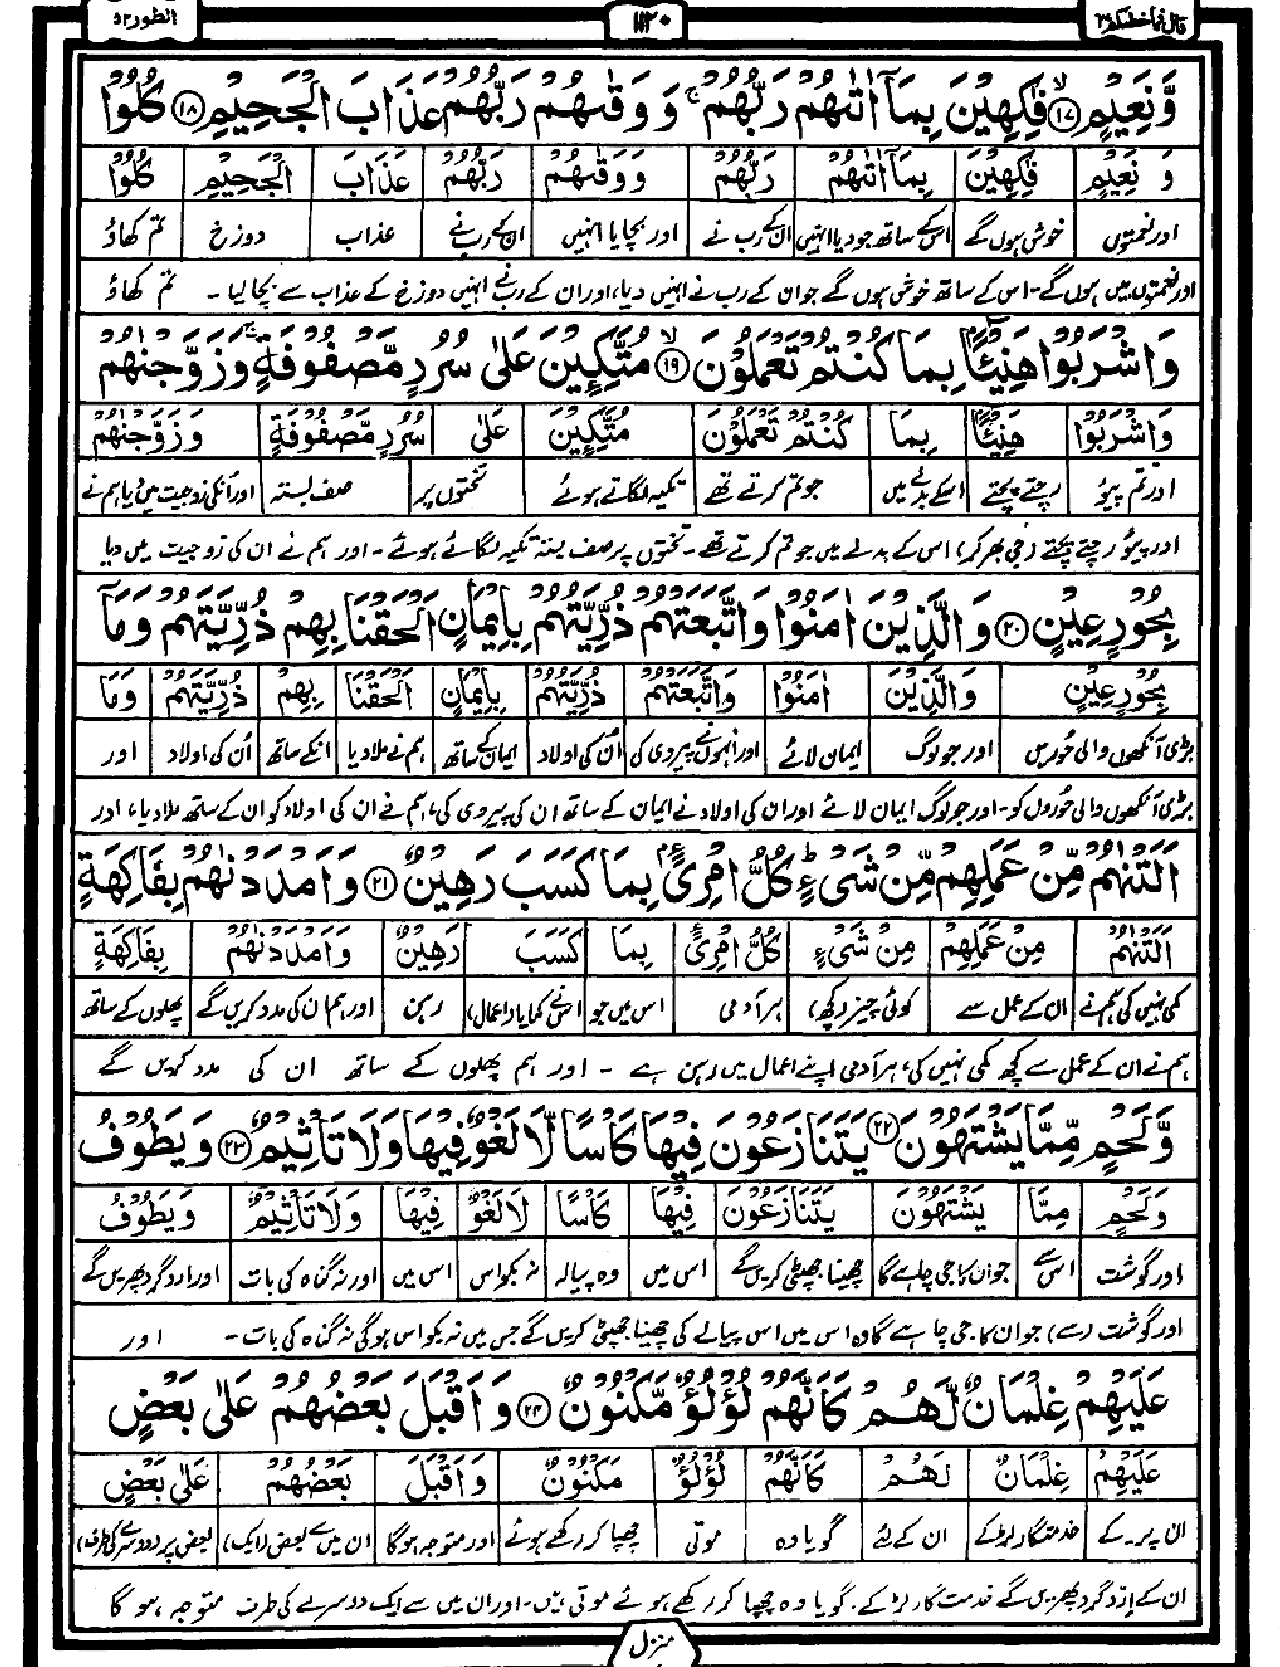 قال فما خطبکم ۲۷
۱۱۳۰
الطور ۵۲
وَّنَعِیْمٍ ﴿۱۷﴾ۙ فٰكِهِیْنَ بِمَاۤ اٰتٰىهُمْ رَبُّهُمْ ۚ وَوَقٰىهُمْ رَبُّهُمْ عَذَابَ الْجَحِیْمِ ﴿۱۸﴾ كُلُوْا
وَ نَعِیْمٍ فٰكِهِیْنَ بِمَاۤ اٰتٰىهُمْ رَبُّهُمْ وَوَقٰىهُمْ رَبُّهُمْ عَذَابَ الْجَحِیْمِ كُلُوْا
اور نعمتوں خوش ہوں گے اس کے ساتھ جو دیا انہیں ان کے رب نے اور بچایا انہیں ان کے رب نے عذاب دوزخ تم کھاؤ
اور نعمتوں میں ہوں گے۔ اس کے ساتھ خوش ہوں گے جو ان کے رب نے انہیں دیا، اور ان کے رب نے انہیں دوزخ کے عذاب سے بچا لیا۔ تم کھاؤ
وَاشْرَبُوْا هَنِیْٓئًۢا بِمَا كُنْتُمْ تَعْمَلُوْنَ ﴿۱۹﴾ۙ مُتَّكِـِٕیْنَ عَلٰى سُرُرٍ مَّصْفُوْفَةٍ ۚ وَزَوَّجْنٰهُمْ
وَاشْرَبُوْا هَنِیْٓئًا بِمَا كُنْتُمْ تَعْمَلُوْنَ مُتَّكِـِٕیْنَ عَلٰى سُرُرٍ مَّصْفُوْفَةٍ وَزَوَّجْنٰهُمْ
اور تم پیؤ رچتے پچتے اسکے بدلے میں جو تم کرتے تھے تکیہ لگاتے ہوئے تختوں پر صف بستہ اور انکی زوجیت میں دیا ہم نے
اور پیؤ رچتے پچتے (جی بھر کر) اس کے بدلے میں جو تم کرتے تھے۔ تختوں پر صف بستہ تکیہ لگائے ہوئے۔ اور ہم نے ان کی زوجیت میں دیا
بِحُوْرٍ عِیْنٍ ﴿۲۰﴾ وَالَّذِیْنَ اٰمَنُوْا وَاتَّبَعَتْهُمْ ذُرِّیَّتُهُمْ بِاِیْمَانٍ اَلْحَقْنَا بِهِمْ ذُرِّیَّتَهُمْ وَمَاۤ
بِحُوْرٍ عِیْنٍ وَالَّذِیْنَ اٰمَنُوْا وَاتَّبَعَتْهُمْ ذُرِّیَّتُهُمْ بِاِیْمَانٍ اَلْحَقْنَا بِهِمْ ذُرِّیَّتَهُمْ وَمَا
بڑی آنکھوں والی حُوریں اور جو لوگ ایمان لائے اور انہوں نے پیروی کی اُن کی اولاد ایمان کے ساتھ ہم نے ملا دیا انکے ساتھ اُن کی اولاد اور
بڑی آنکھوں والی حُوروں کو۔ اور جو لوگ ایمان لائے اور ان کی اولاد نے ایمان کے ساتھ ان کی پیروی کی، ہم نے ان کی اولاد کو ان کے ساتھ ملا دیا، اور
اَلَتْنٰهُمْ مِّنْ عَمَلِهِمْ مِّنْ شَیْءٍ ؕ كُلُّ امْرِئٍۭ بِمَا كَسَبَ رَهِیْنٌ ﴿۲۱﴾ وَاَمْدَدْنٰهُمْ بِفَاكِهَةٍ
اَلَتْنٰهُمْ مِنْ عَمَلِهِمْ مِنْ شَیْءٍ كُلُّ امْرِئٍ بِمَا كَسَبَ رَهِیْنٌ وَاَمْدَدْنٰهُمْ بِفَاكِهَةٍ
کمی نہیں کی ہم نے ان کے عمل سے کوئی چیز (کچھ) ہر آدمی اس میں جو اُسنے کمایا (اعمال) رہن اور ہم ان کی مدد کریں گے پھلوں کے ساتھ
ہم نے ان کے عمل سے کچھ کمی نہیں کی، ہر آدمی اپنے اعمال میں رہن ہے۔ اور ہم پھلوں کے ساتھ ان کی مدد کریں گے
وَّلَحْمٍ مِّمَّا یَشْتَهُوْنَ ﴿۲۲﴾ یَتَنَازَعُوْنَ فِیْهَا كَاْسًا لَّا لَغْوٌ فِیْهَا وَلَا تَاْثِیْمٌ ﴿۲۳﴾ وَیَطُوْفُ
وَلَحْمٍ مِمَّا یَشْتَهُوْنَ یَتَنَازَعُوْنَ فِیْهَا كَاْسًا لَا لَغْوٌ فِیْهَا وَلَا تَاْثِیْمٌ وَیَطُوْفُ
اور گوشت اس سے جو ان کا جی چاہے گا چھینا جھپٹی کریں گے اس میں وہ پیالہ نہ بکواس اس میں اور نہ گناہ کی بات اور ارد گرد پھریں گے
اور گوشت (سے) جو ان کا جی چاہے گا وہ اس میں اس پیالے کی چھینا جھپٹی کریں گے جس میں نہ بکواس ہوگی نہ گناہ کی بات۔ اور
عَلَیْهِمْ غِلْمَانٌ لَّهُمْ كَاَنَّهُمْ لُؤْلُؤٌ مَّكْنُوْنٌ ﴿۲۴﴾ وَاَقْبَلَ بَعْضُهُمْ عَلٰى بَعْضٍ
عَلَیْهِمْ غِلْمَانٌ لَهُمْ كَاَنَّهُمْ لُؤْلُؤٌ مَكْنُوْنٌ وَاَقْبَلَ بَعْضُهُمْ عَلٰى بَعْضٍ
ان پر۔ کے خدمتگار لڑکے ان کے لئے گویا وہ موتی چھپا کر رکھے ہوئے اور متوجہ ہوگا ان میں سے بعض (ایک) بعض پر (دوسرے کی طرف)
ان کے اردگرد پھریں گے خدمت گار لڑکے۔ گویا وہ چھپا کر رکھے ہوئے موتی ہیں۔ اور ان میں سے ایک دوسرے کی طرف متوجہ ہو گا
منزل